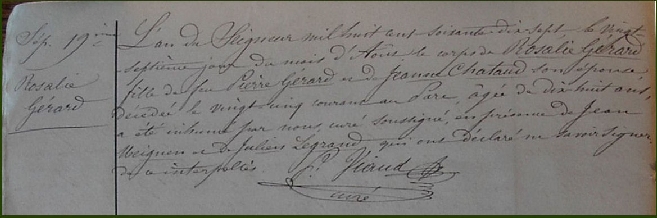 Sép. 19ième
Rosalie
Gérard
L'an du Seigneur mil huit cent soixante dix sept le vingt
septième jour du mois d'Août le corps de Rosalie Gérard
fille de feu Pierre Gérard et de Jeanne Chataud son épouse,
décédée le vingt-cinq courant au Parc, âgée de dix-huit ans,
a été inhumé par nous, curé soussigné, en présence de Jean
et de Julien Legrand qui ont déclaré ne savoir signer
de ce interpellés.
Viaud
curé